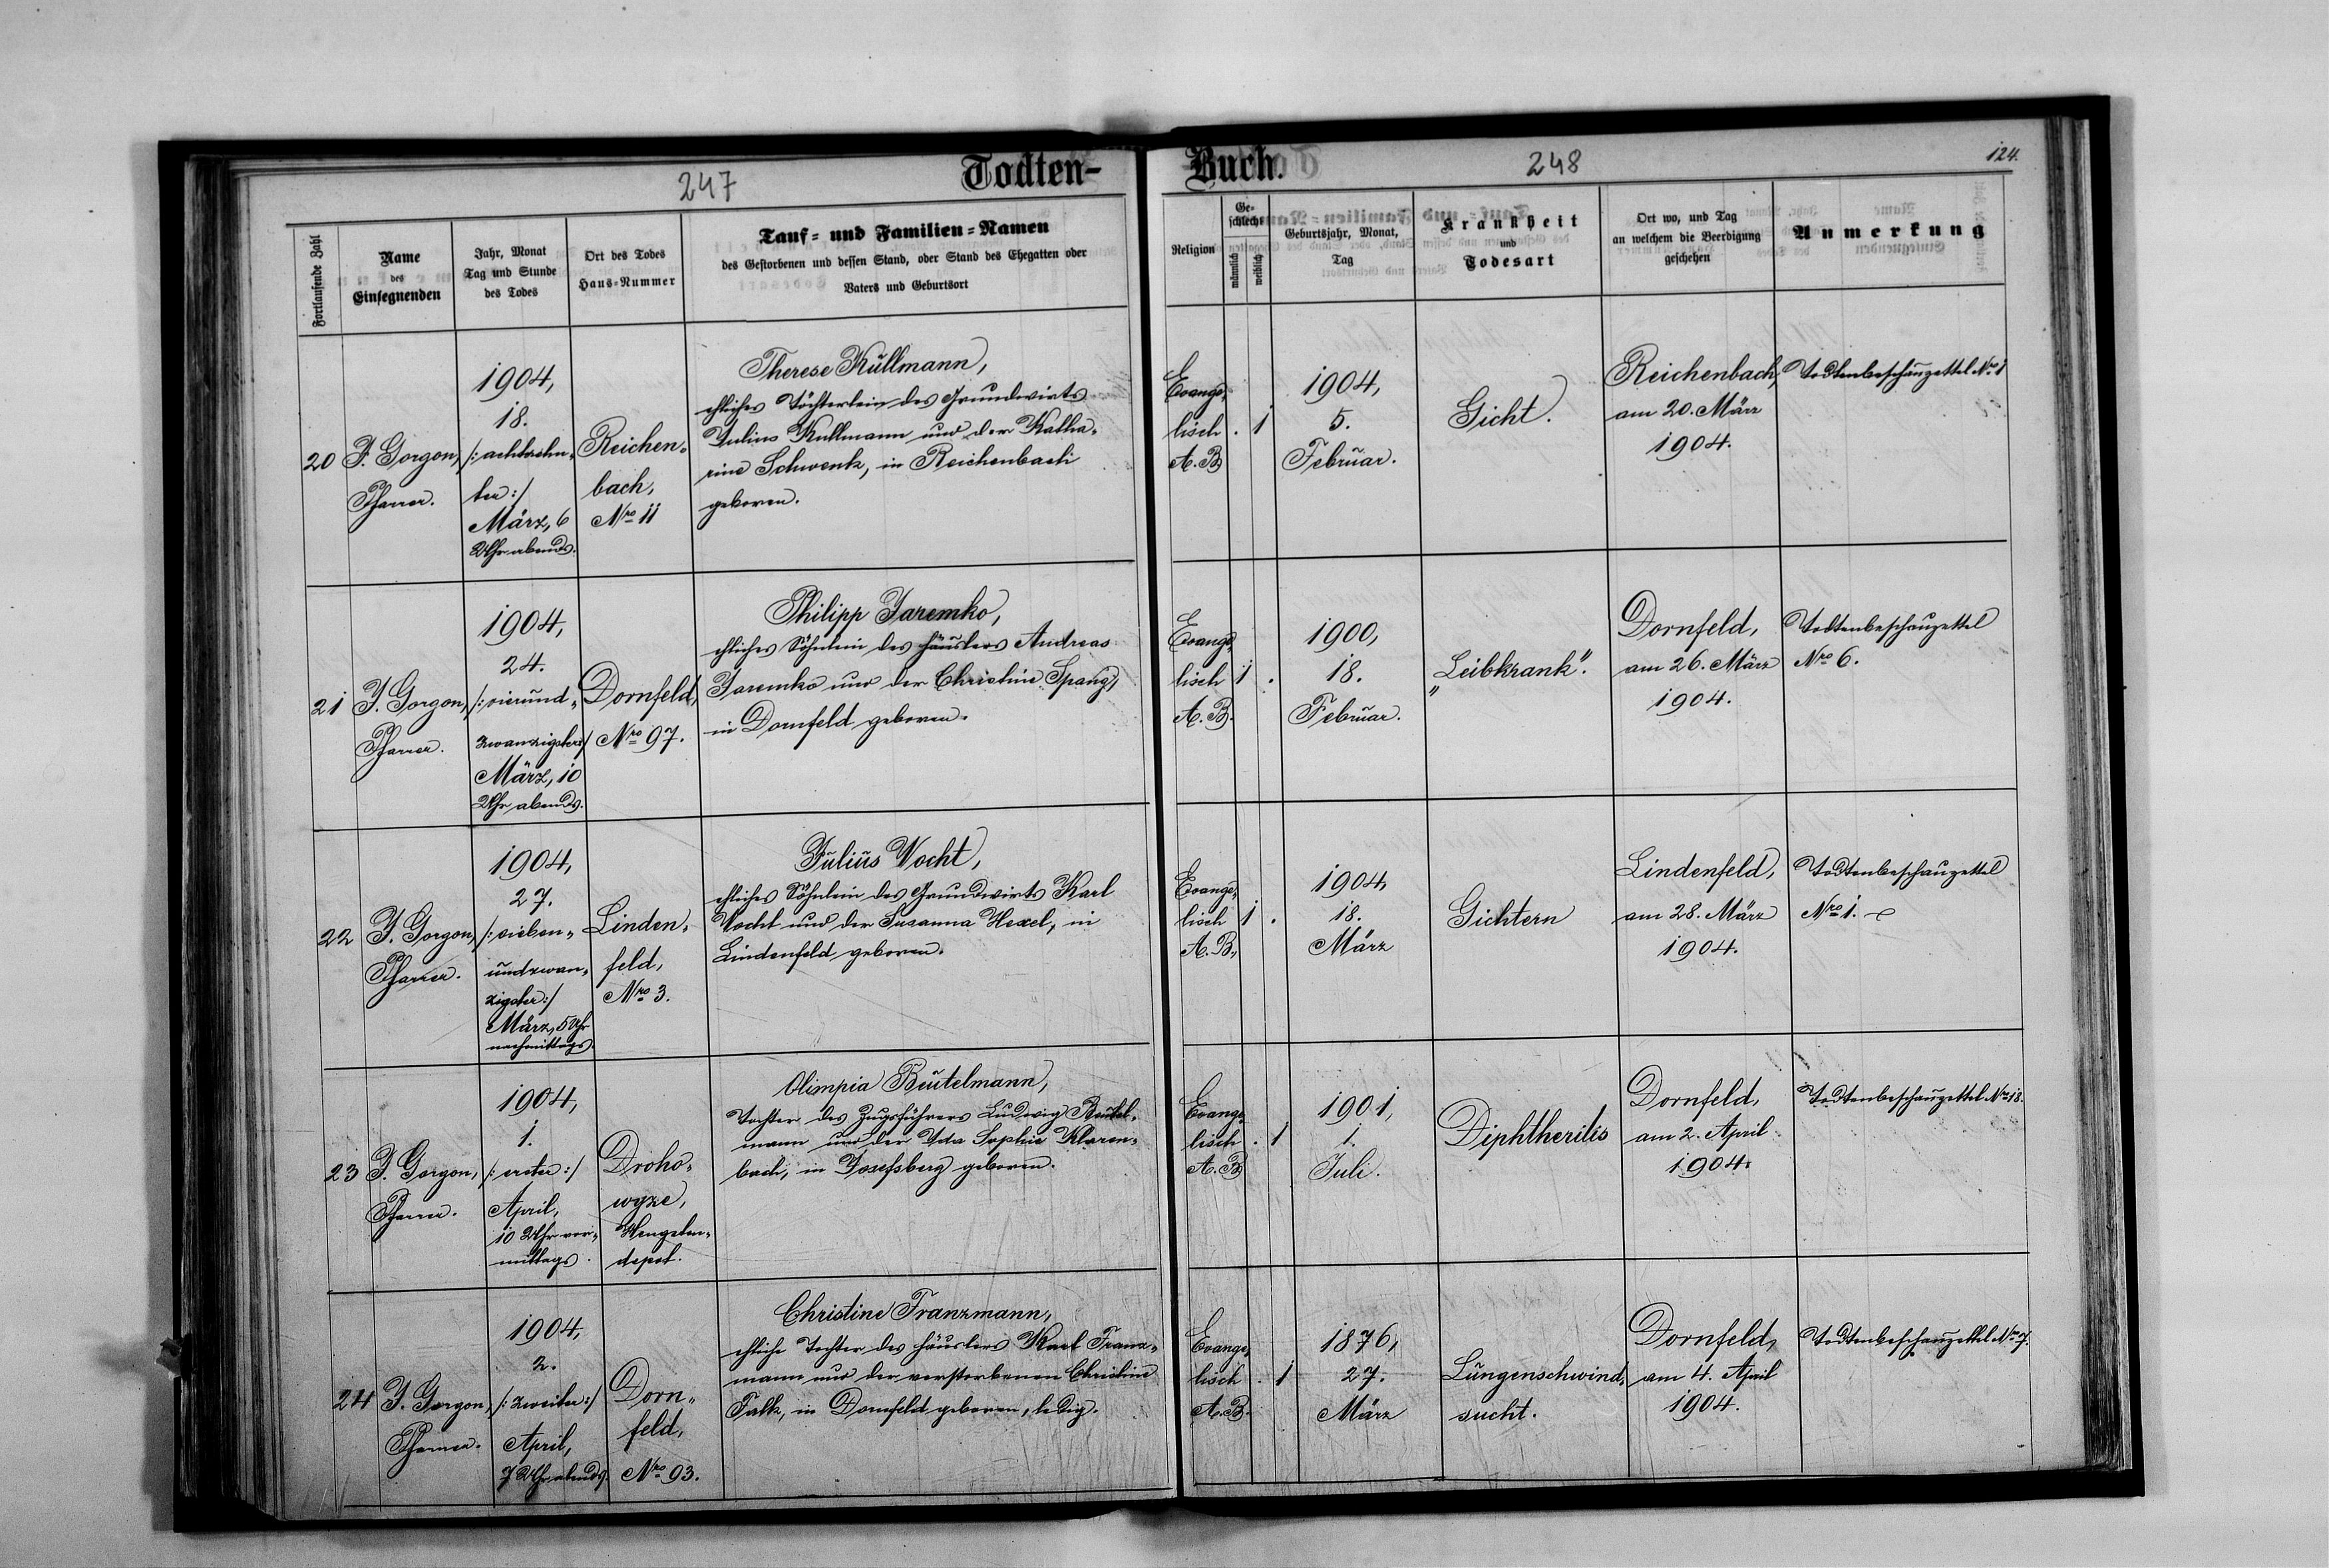 247
Todten-
Buch.
248
124.
Fortlaufende Zahl
Name
des
Einsegnenden
Jahr, Monat
Tag und Stunde
des Todes
Ort des Todes
Haus-Nummer
Tauf- und Familien-Namen
des Gestorbenen und dessen Stand, oder Stand des Ehegatten oder
Vaters und Geburtsort
Religion
Ge-
schlecht
männlich
weiblich
Geburtsjahr, Monat,
Tag
Krankheit
und
Todesart
Ort wo, und Tag
an welchem die Beerdigung
geschehen
Anmerkung
20
J. Gorgon,
Pfarrer.
1904,
18.
/: achtzehn-
ter :/
März, 6
Uhr abends.
Reichen-
bach,
Nro 11
Therese Kullmann,
ehliches Töchterlein des Grundwirts
Julius Kullmann und der Katha-
rine Schwenk, in Reichenbach
geboren.
Evange-
lisch
A. B.
. 1
1904,
5.
Februar.
Gicht.
Reichenbach,
am 20. März
1904.
Todtenbeschauzettel Nro 1
21
J. Gorgon,
Pfarrer.
1904,
24.
/: vierund-
zwanzigster :/
März, 10
Uhr abends.
Dornfeld,
Nro 97.
Philipp Jaremko,
ehliches Söhnlein des Häuslers Andreas
Jaremko und der Christine Spang,
in Dornfeld geboren.
Evange-
lisch
A. B.
1 .
1900,
18.
Februar.
„Leibkrank".
Dornfeld,
am 26. März
1904.
Todtenbeschauzettel
Nro 6.
22
J. Gorgon,
Pfarrer.
1904,
27.
/: sieben-
undzwan-
zigster :/
März, 5 Uhr
nachmittags.
Linden-
feld,
Nro 3.
Julius Vocht,
ehliches Söhnlein des Grundwirts Karl
Vocht und der Susanna Hexel, in
Lindenfeld geboren.
Evange-
lisch
A. B.
1 .
1904,
18.
März
Gichtern
Lindenfeld,
am 28. März
1904.
Todtenbeschauzettel
Nro 1.
23
J. Gorgon,
Pfarrer.
1904,
1.
/: erster :/
April,
10 Uhr vor-
mittags.
Droho-
wyze,
Hengsten-
depot.
Olimpia Beutelmann,
Tochter des Zugsführers Ludwig Beutel-
mann und der Ida Sophie Klaren-
bach, in Josefsberg geboren.
Evange-
lisch
A. B.
. 1
1901,
1.
Juli.
Diphtheritis
Dornfeld,
am 2. April
1904.
Todtenbeschauzettel Nro 18.
24
J. Gorgon,
Pfarrer.
1904,
2.
/: zweiter :/
April,
7 Uhr abends.
Dorn-
feld,
Nro 93.
Christine Franzmann,
ehliche Tochter des Häuslers Karl Franz-
mann und der verstorbenen Christine
Falk, in Dornfeld geboren, ledig.
Evange-
lisch
A. B.
. 1
1876,
27.
März
Lungenschwind-
sucht.
Dornfeld,
am 4. April
1904.
Todtenbeschauzettel Nro 7.